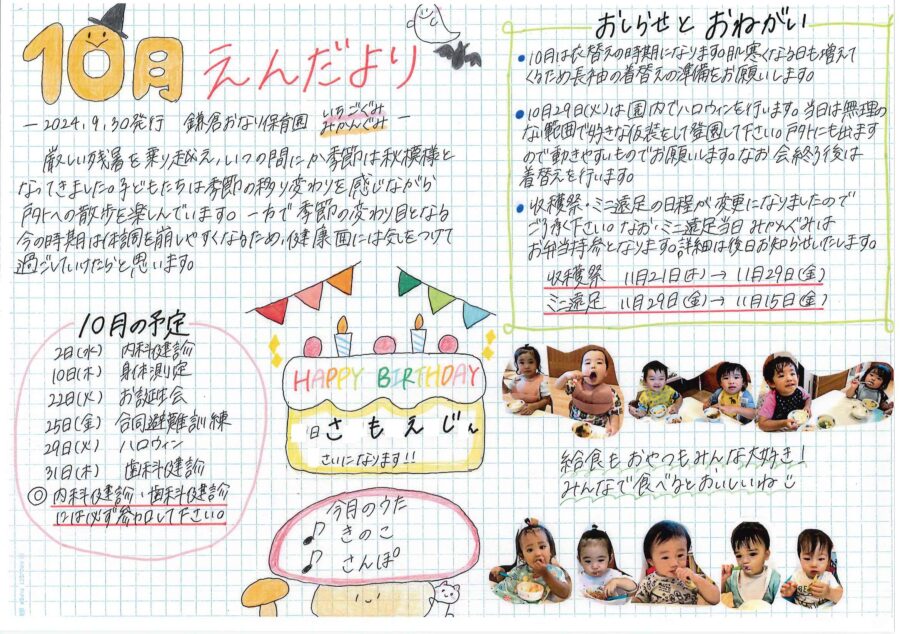 10月 えんだより
― 2024.9.30発行 鎌倉おなり保育園 いちごぐみ みかんぐみ ―
厳しい残暑を乗り越え、いつの間にか季節は秋模様と
なってきました。子どもたちは季節の移り変わりを感じながら
戸外への散歩を楽しんでいます。一方で季節の変わり目となる
今の時期は体調を崩しやすくなるため、健康面には気をつけて
過ごしていけたらと思います。
10月の予定
2日(水) 内科健診
10日(木) 身体測定
22日(火) お誕生会
25日(金) 合同避難訓練
29日(火) ハロウィン
31日(木) 歯科健診
◎内科健診・歯科健診
には必ず参加して下さい。
HAPPY BIRTHDAY
日 さ も え じん
さいになります!!
今月のうた
♪ きのこ
♪ さんぽ
おしらせと おねがい
• 10月は衣替えの時期になります。肌寒くなる日も増えて
くるため長袖の着替えの準備をお願いします。
• 10月29日(火)は園内でハロウィンを行います。当日は無理の
ない範囲で好きな仮装をして登園して下さい。戸外にも出ます
ので動きやすいものでお願いします。なお会終了後は
着替えを行います。
• 収穫祭・ミニ遠足の日程が変更になりましたので
ご了承下さい。なお、ミニ遠足当日みかんぐみは
お弁当持参となります。詳細は後日お知らせいたします。
収穫祭 11月21日(木) → 11月29日(金)
ミニ遠足 11月29日(金) → 11月15日(金)
給食もおやつもみんな大好き!
みんなで食べるとおいしいね